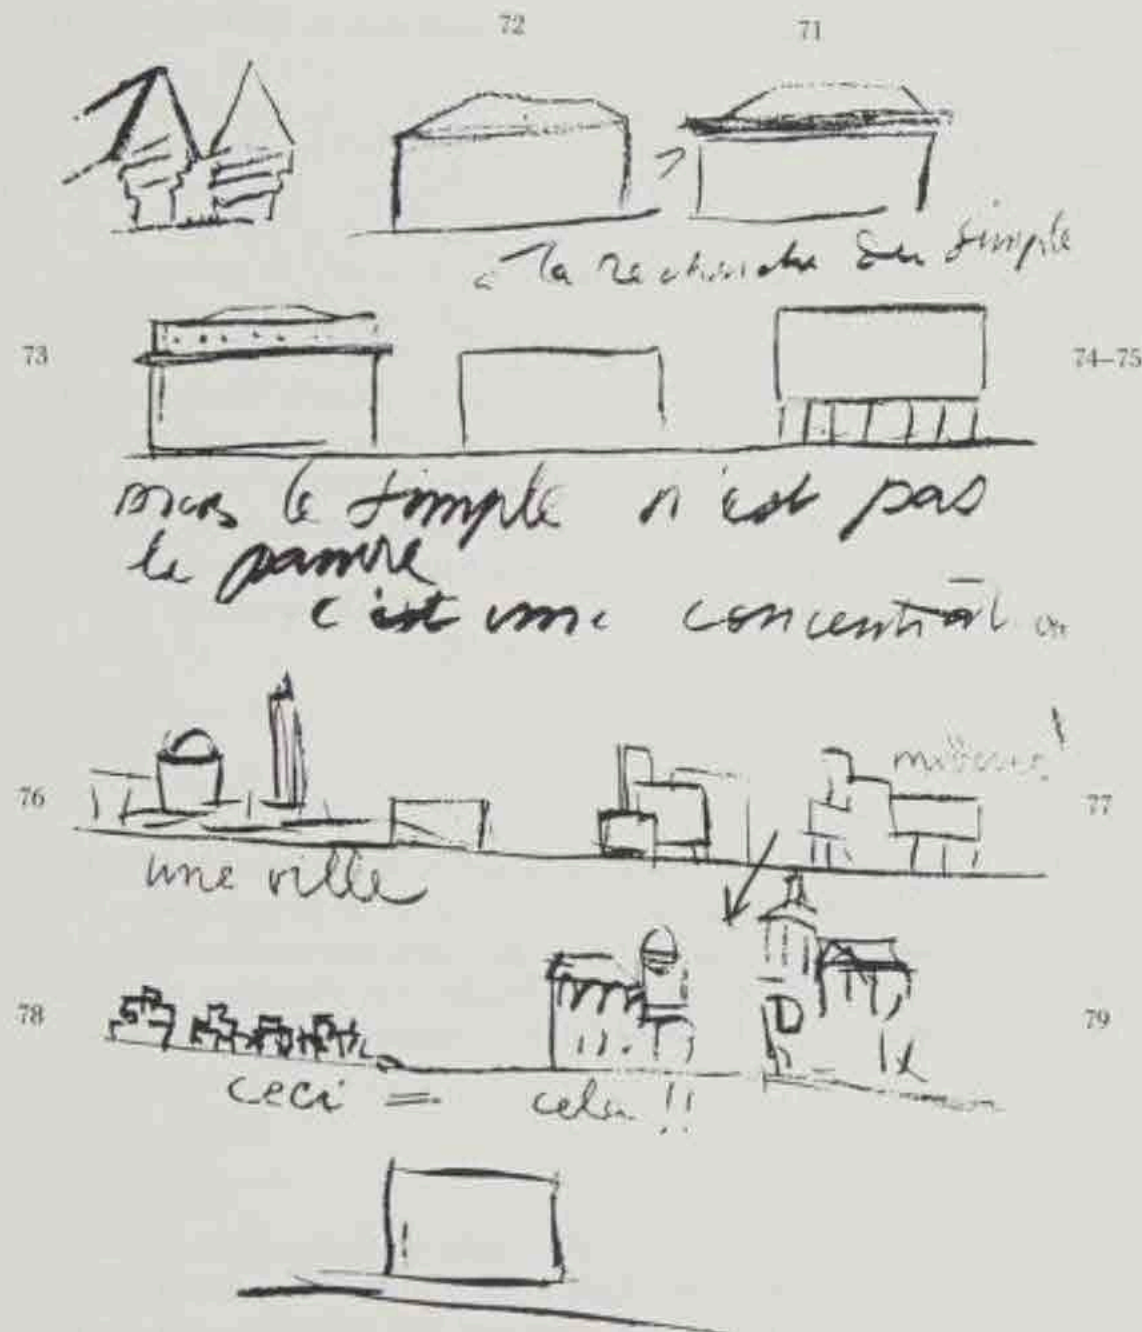 72 71
à la recherche du simple
73 74–75
mais le simple n'est pas
le pauvre
c'est une concentration
76 77
une ville
78 79
ceci = cela !!